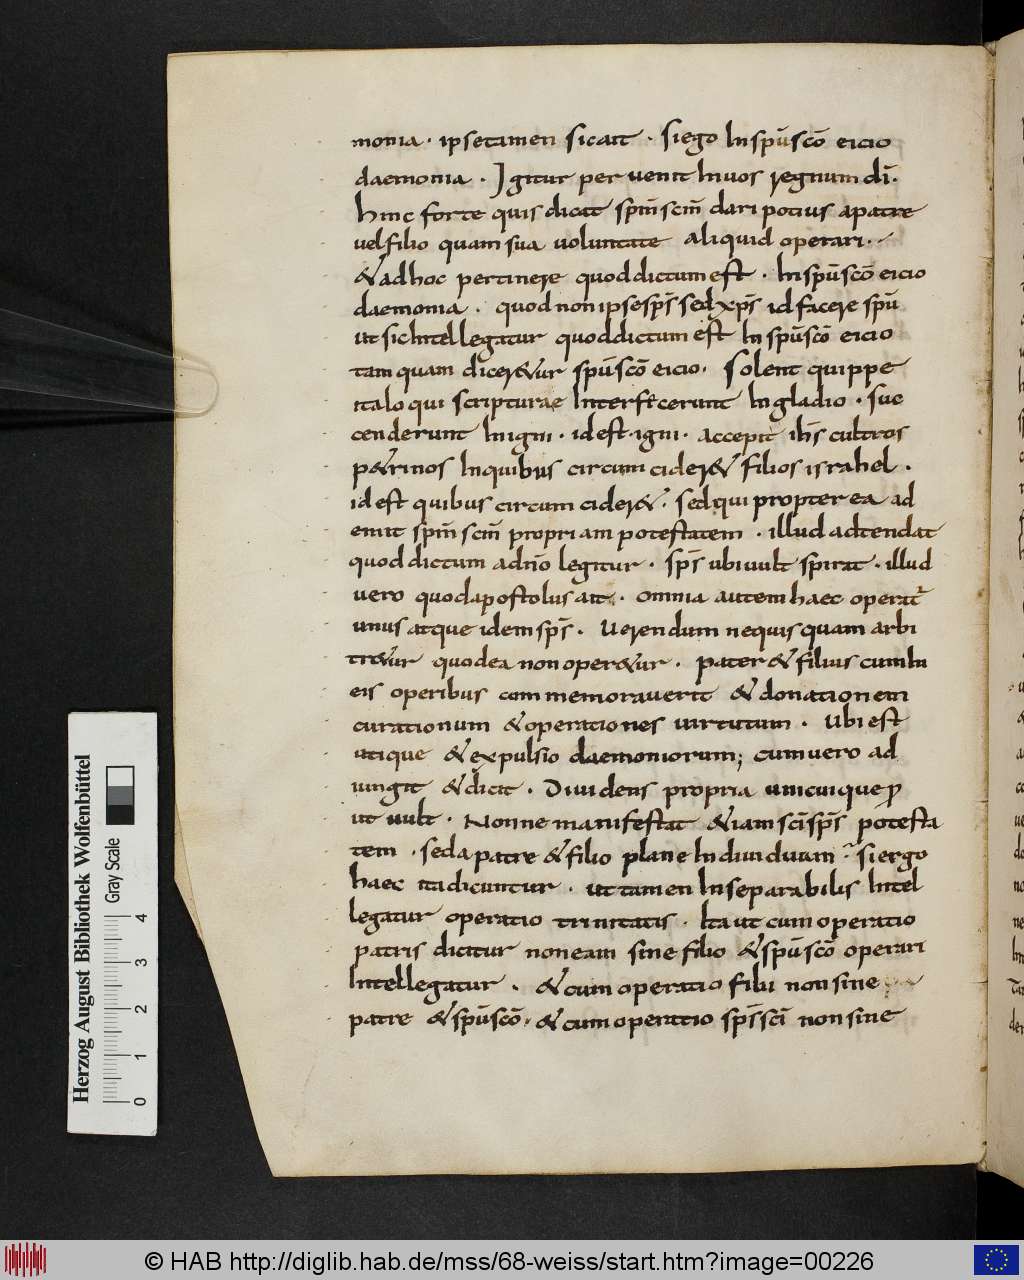 monia · ipsetamen sicait · siego Inspūscō eicio
daemonia · Igitur peruenit Inuos regnum dī·
hinc forte quis dicat spm̄ scm̄ dari potius apatre
uelfilio quam sua uoluntate aliquid operari ·
&adhoc pertinere quoddictum est · Inspūscō eicio
daemonia · quod non ipse sps̄ sed xp̄s id facere spū
ut sic Intellegatur quoddictum est In spūscō eicio
tam quam diceretur spūscō eicio · Solent quippe
italoqui scripturae Interfecerunt Ingladio · suc
cenderunt Inigni · idest igni · accepit ih̄s cultros
p&rinos Inquibus circumcider& filios israhel ·
idest quibus circumcider& · sed qui propterea ad
emit spm̄ scm̄ propriam potestatem · illud adtendat
quod dictum adnō legitur · sps̄ ubi uult spirat · illud
uero quodapostolus ait · omnia autem haec operat᷑
unus atque idem sps̄ · Uerendum nequisquam arbi
tr&ur quodea non oper&ur · pater & filius cum In
eis operibus commemorauerit & donationem
curationum & operationes uirtutum · Ubi est
utique & expulsio daemoniorum; cumuero ad
iungit & dicit · Diuidens propria unicuique p̄
ut uult · Nonne manifestat &iam scī sps̄ potesta
tem · sed a patre & filio plane Indiuiduam · siergo
haec ita dicuntur · ut tamen Inseparabilis Intel
legatur operatio trinitatis · Ita ut cum operatio
patris dicitur non eam sine filio & spūscō operari
Intellegatur · & cum operatio filii non sine
patre & spūscō · & cum operatio sps̄ scī non sine
Herzog August Bibliothek Wolfenbüttel
Gray Scale
0 1 2 3 4
© HAB http://diglib.hab.de/mss/68-weiss/start.htm?image=00226